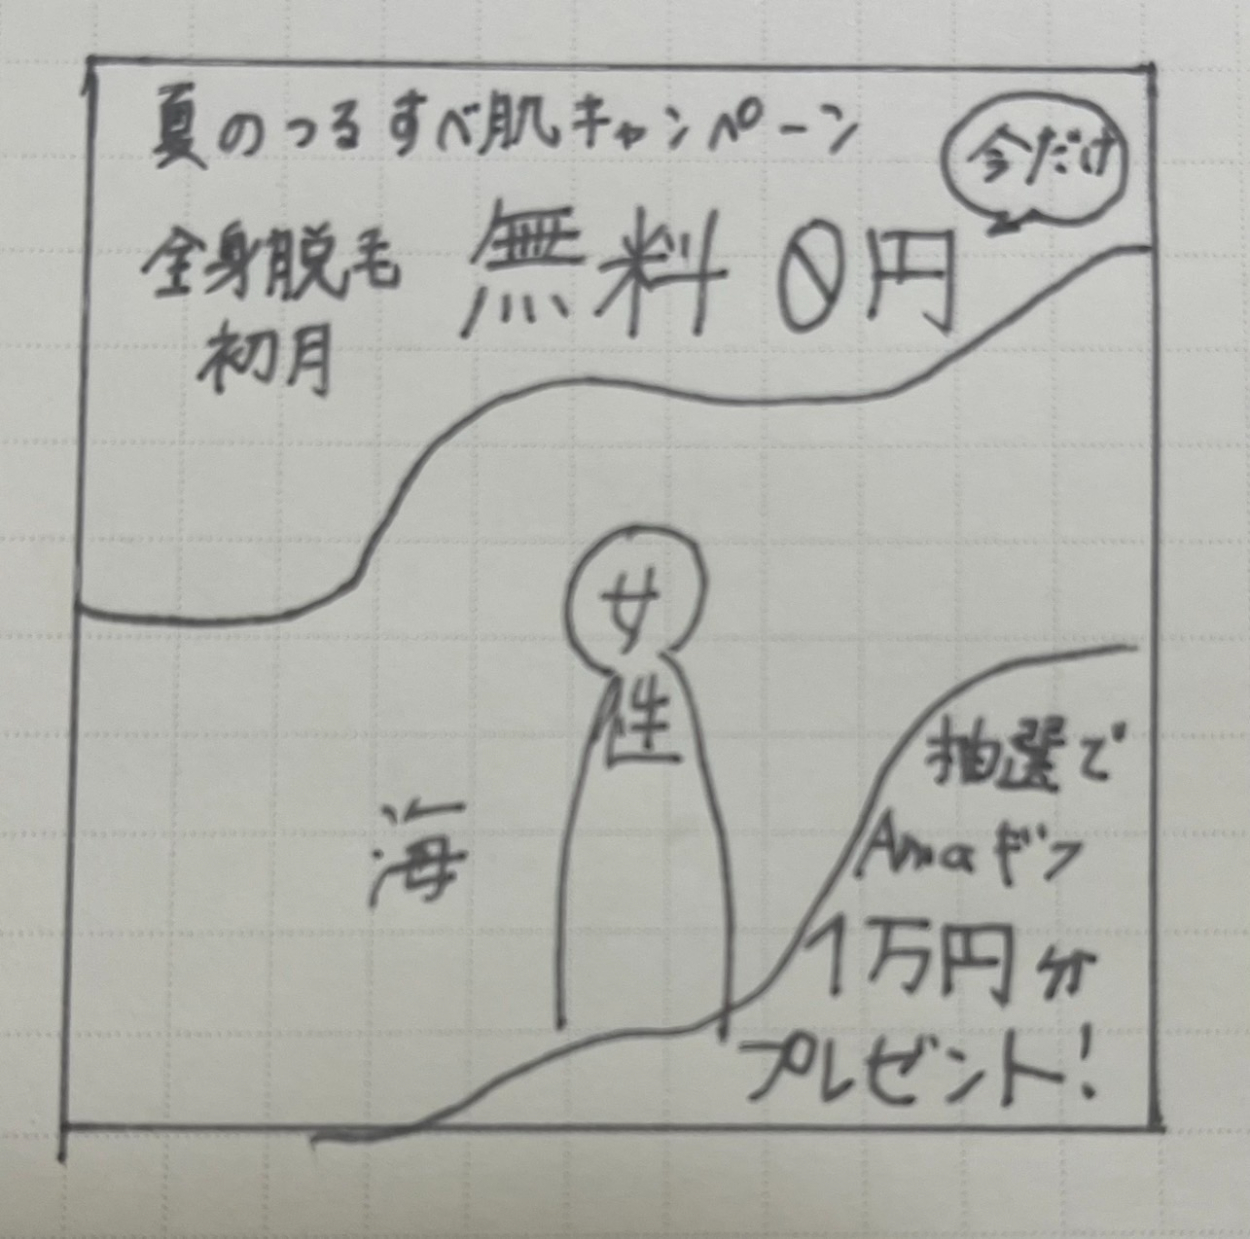 夏のつるすべ肌キャンペーン
今だけ
全身脱毛
初月
無料0円
女性
海
抽選で
Amaギフ
1万円分
プレゼント!